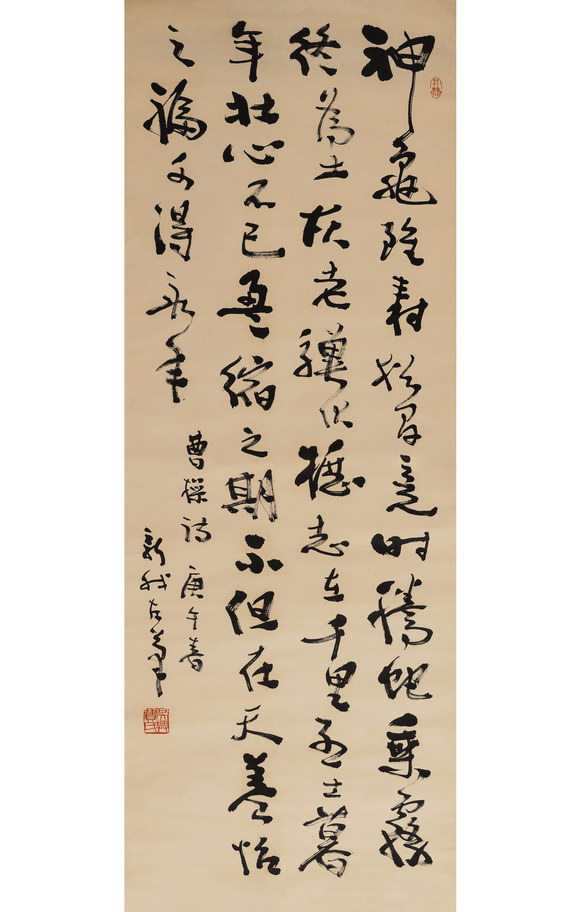 神龜雖壽猶有竟时騰蛇乘霧
終為土灰老驥伏櫪志在千里烈士暮
年壮心不已盈縮之期不但在天養怡
之福可得永年
曹操詩 庚午春
新我左筆